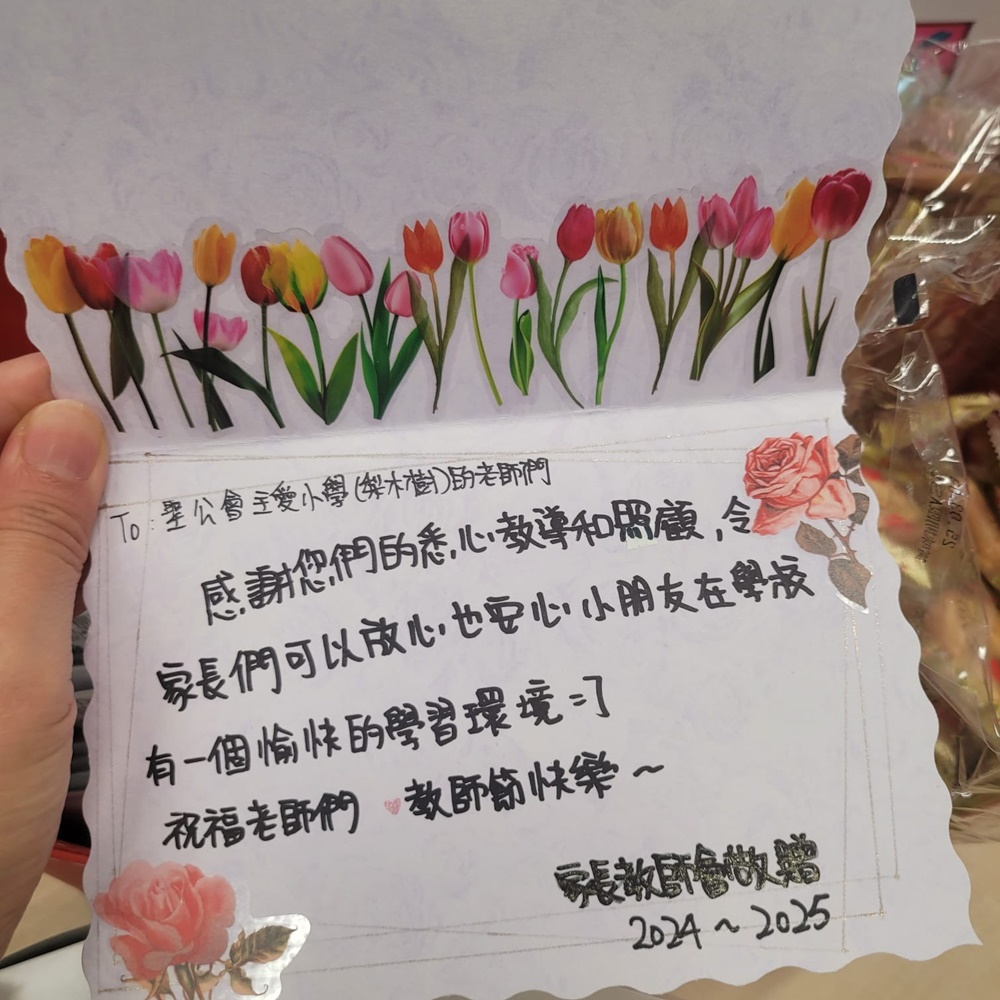 To: 聖公會主愛小學(梨木樹)的老師們
感謝您們的悉心教導和照顧，令
家長們可以放心也安心小朋友在學校
有一個愉快的學習環境=]
祝福老師們 教師節快樂～
家長教師會敬贈
2024～2025